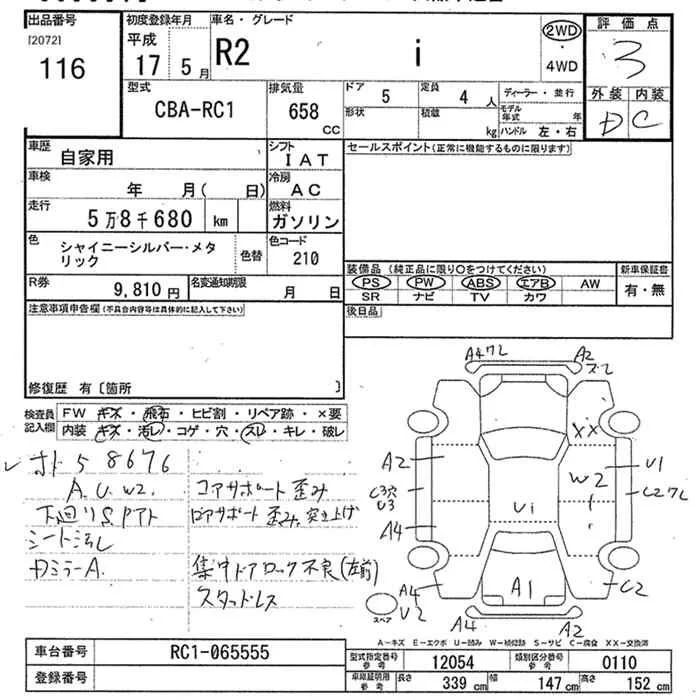 出品番号
[2072]
116
初度登録年月
平成
17 5月
車名・グレード
R2 i
2WD
・
4WD
評価点
3
外装 内装
D C
型式
CBA-RC1
排気量
658
cc
ドア
5
定員
4 人
形状
積載
kg
ディーラー・並行
モデル年式 年
ハンドル 左・右
車歴
自家用
シフト
IAT
車検
年 月( 日)
冷房
AC
走行
5万8千680 km
燃料
ガソリン
色
シャイニーシルバー・メタ
リック
色替
色コード
210
R券
9,810円
名変通知期限
月 日
セールスポイント(正常に機能するものに限ります)
装備品 (純正品に限り○をつけてください)
新車保証書
PS PW ABS エアB AW
有・無
SR ナビ TV カワ
後日品
注意事項申告欄(不具合内容等は具体的に記入して下さい)
修復歴 有〔箇所 〕
検査員
記入欄
FW キズ・飛石・ヒビ割・リペア跡・×要
内装 キズ・汚レ・コゲ・穴・スレ・キレ・破レ
A.U.W2.
コアサポート歪み
下廻りS.Pアト
ロアサポート歪み.突き上げ
シート汚レ
DミラーA.
集中ドアロック不良(左前)
スタッドレス
A4ワレ
A2
ズレ
XX
A2
W2
U1
C3穴
U3
C2ワレ
Ui
A4
A1
A4
U2
C2
A4
A2
スペア
A-キズ E-エクボ U-凹み W-補修跡 S-サビ C-腐食 XX-交換済
車台番号
RC1-065555
登録番号
型式指定番号
参考
12054
類別区分番号
参考
0110
車庫証明用
参考
長さ
339 cm
幅
147 cm
高さ
152 cm